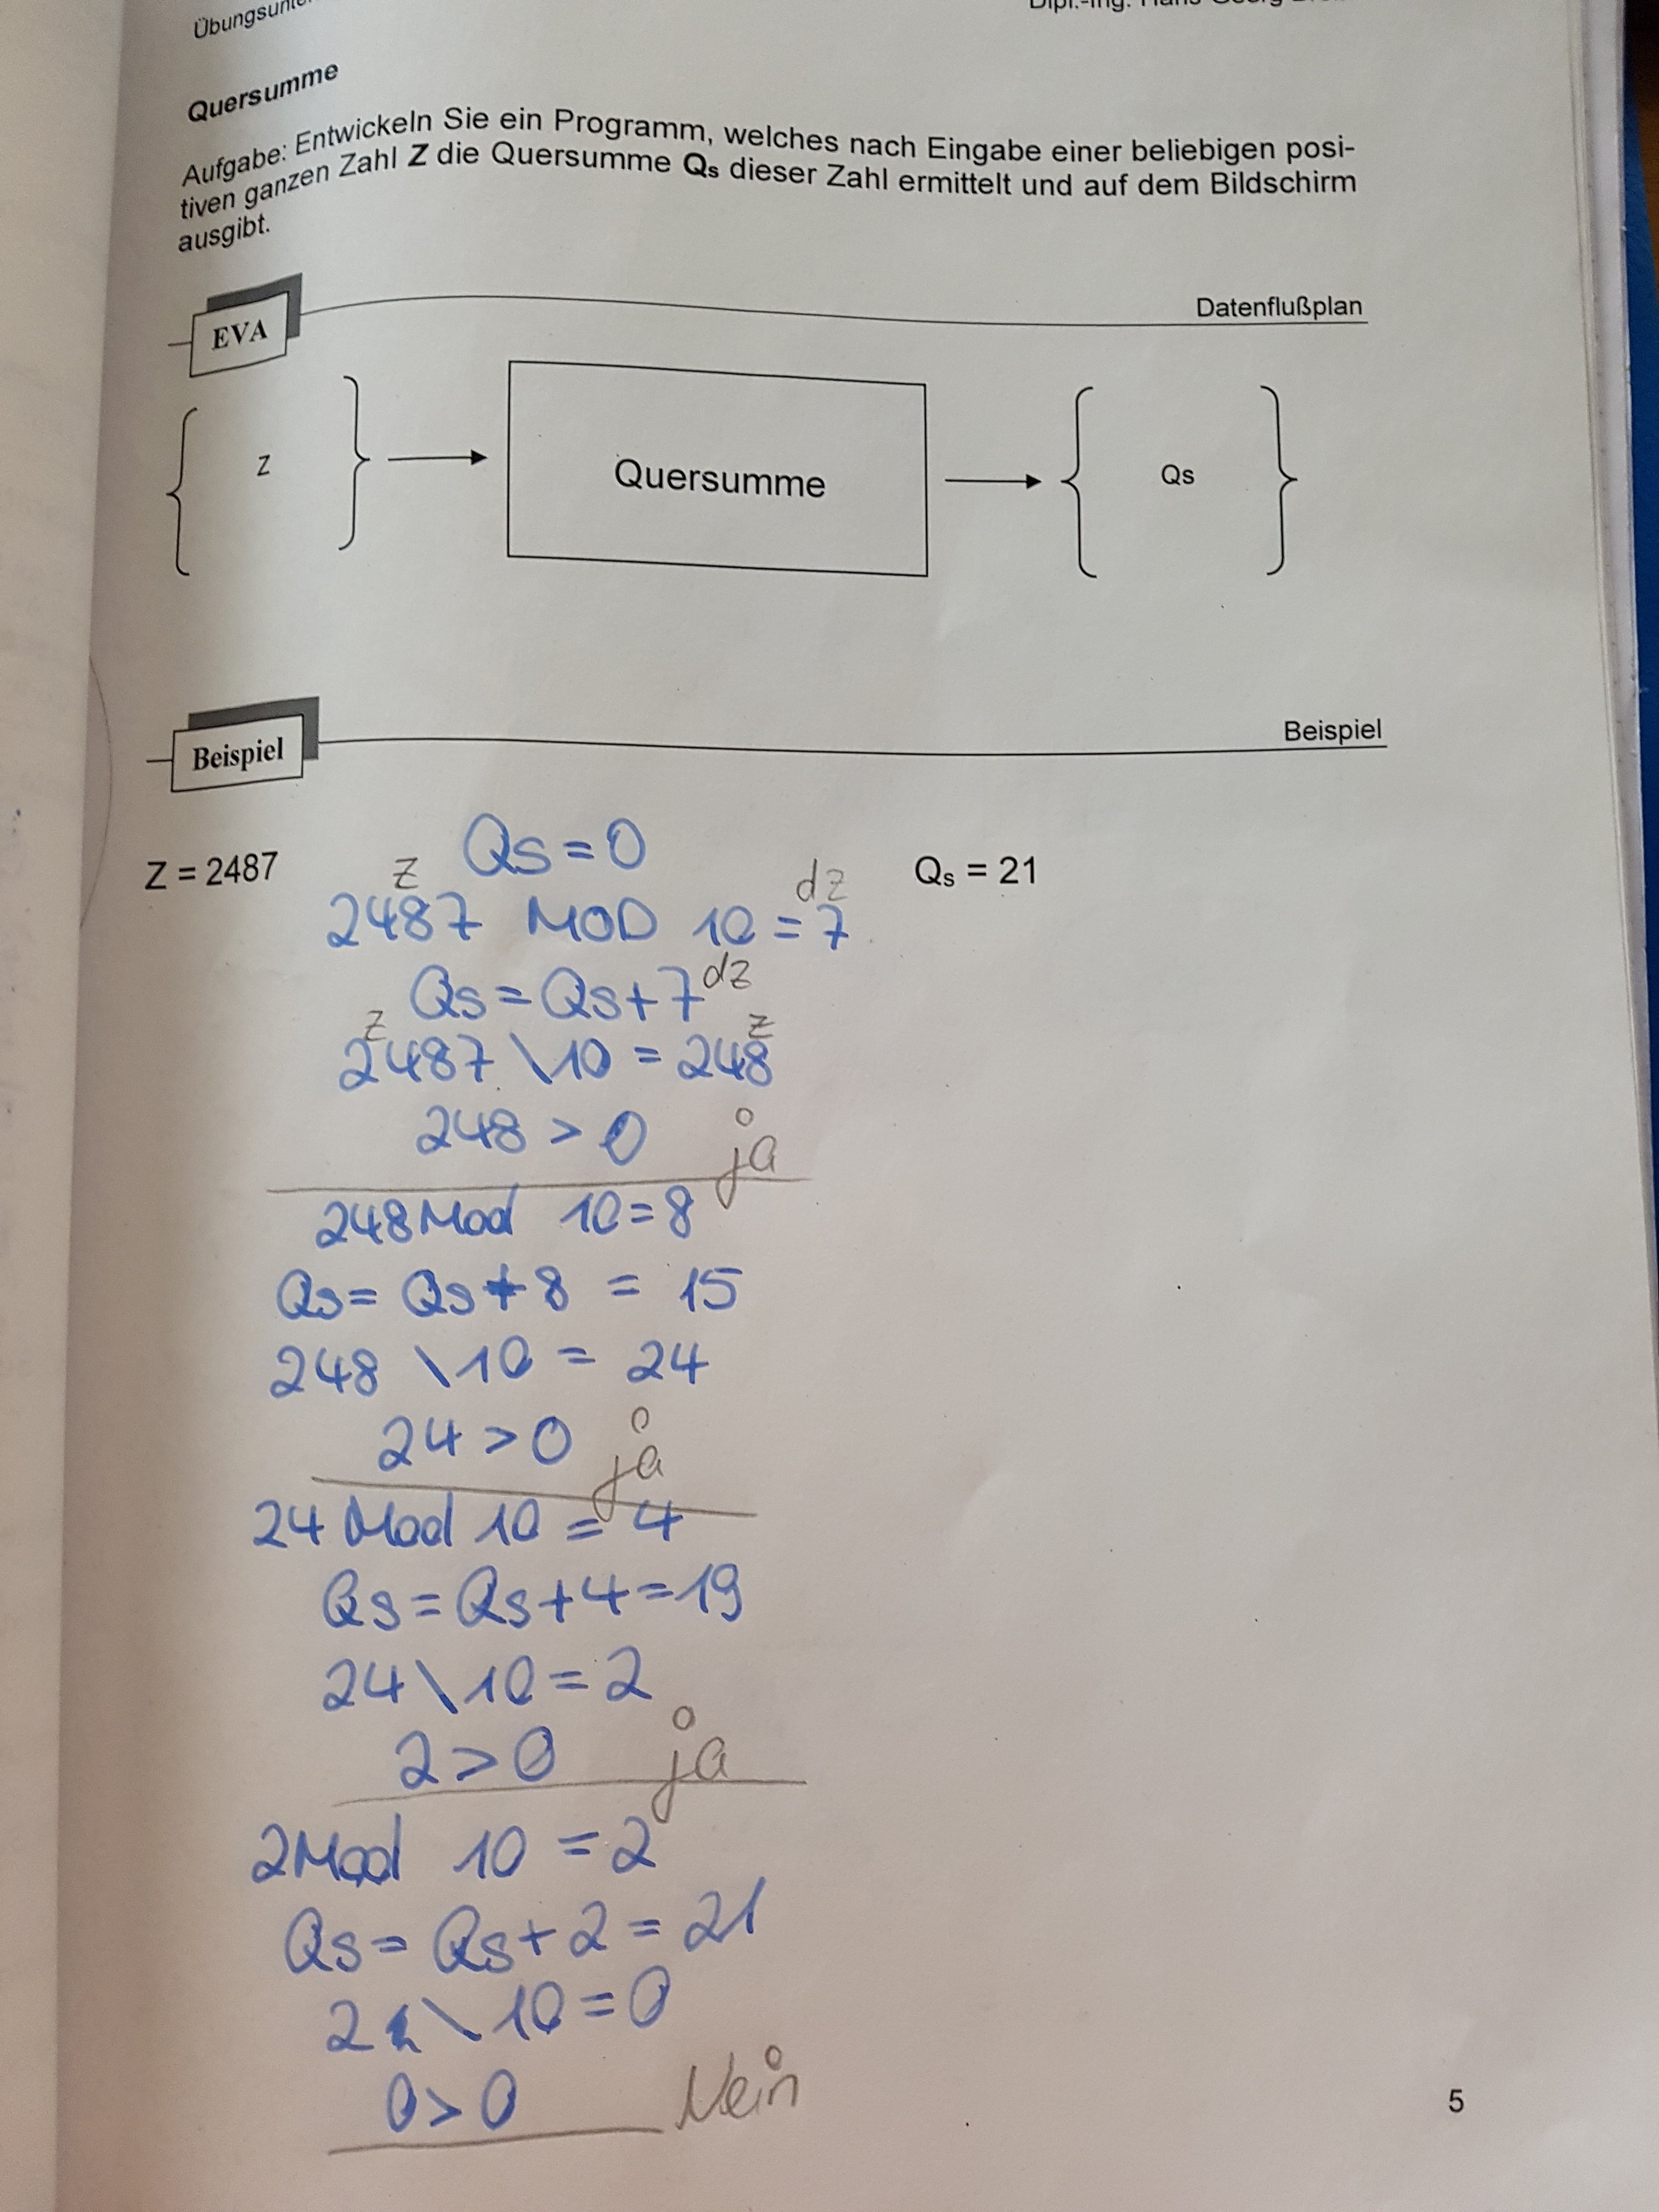 Quersumme
Aufgabe: Entwickeln Sie ein Programm, welches nach Eingabe einer beliebigen posi-
tiven ganzen Zahl Z die Quersumme Qs dieser Zahl ermittelt und auf dem Bildschirm
ausgibt.
EVA
Datenflußplan
Z
Quersumme
Qs
Beispiel
Beispiel
Z = 2487
Qs = 0
Qs = 21
z dz
2487 MOD 10 = 7
Qs = Qs + 7 dz
z z
2487 \ 10 = 248
248 > 0 ja
248 Mod 10 = 8
Qs = Qs + 8 = 15
248 \ 10 = 24
24 > 0 ja
24 Mod 10 = 4
Qs = Qs + 4 = 19
24 \ 10 = 2
2 > 0 ja
2 Mod 10 = 2
Qs = Qs + 2 = 21
2 \ 10 = 0
0 > 0 Nein
5